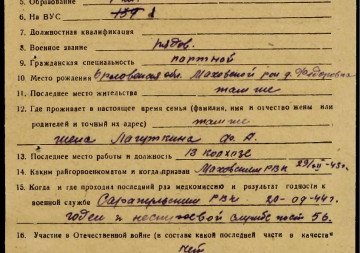 5. Образование
6. На ВУС 134
7. Должностная квалификация
8. Военное звание рядов.
9. Гражданская специальность портной
10. Место рождения Орловская обл. Маховской р-он д. Федоровка
11. Последнее место жительства там же
12. Где проживает в настоящее время семья (фамилия, имя и отчество жены или
родителей и точный их адрес) там же
жена Лагуткина Ф. А.
13. Последнее место работы и должность В колхозе
14. Каким райгорвоенкоматом и когда призван Маховским РВК 43г.
15. Когда и где проходил последний раз медкомиссию и результат годности к
военной службе РВК 20-09-44г.
годен к нестроевой службе 56.
16. Участие в Отечественной войне (в составе какой последней части и в качестве
нет